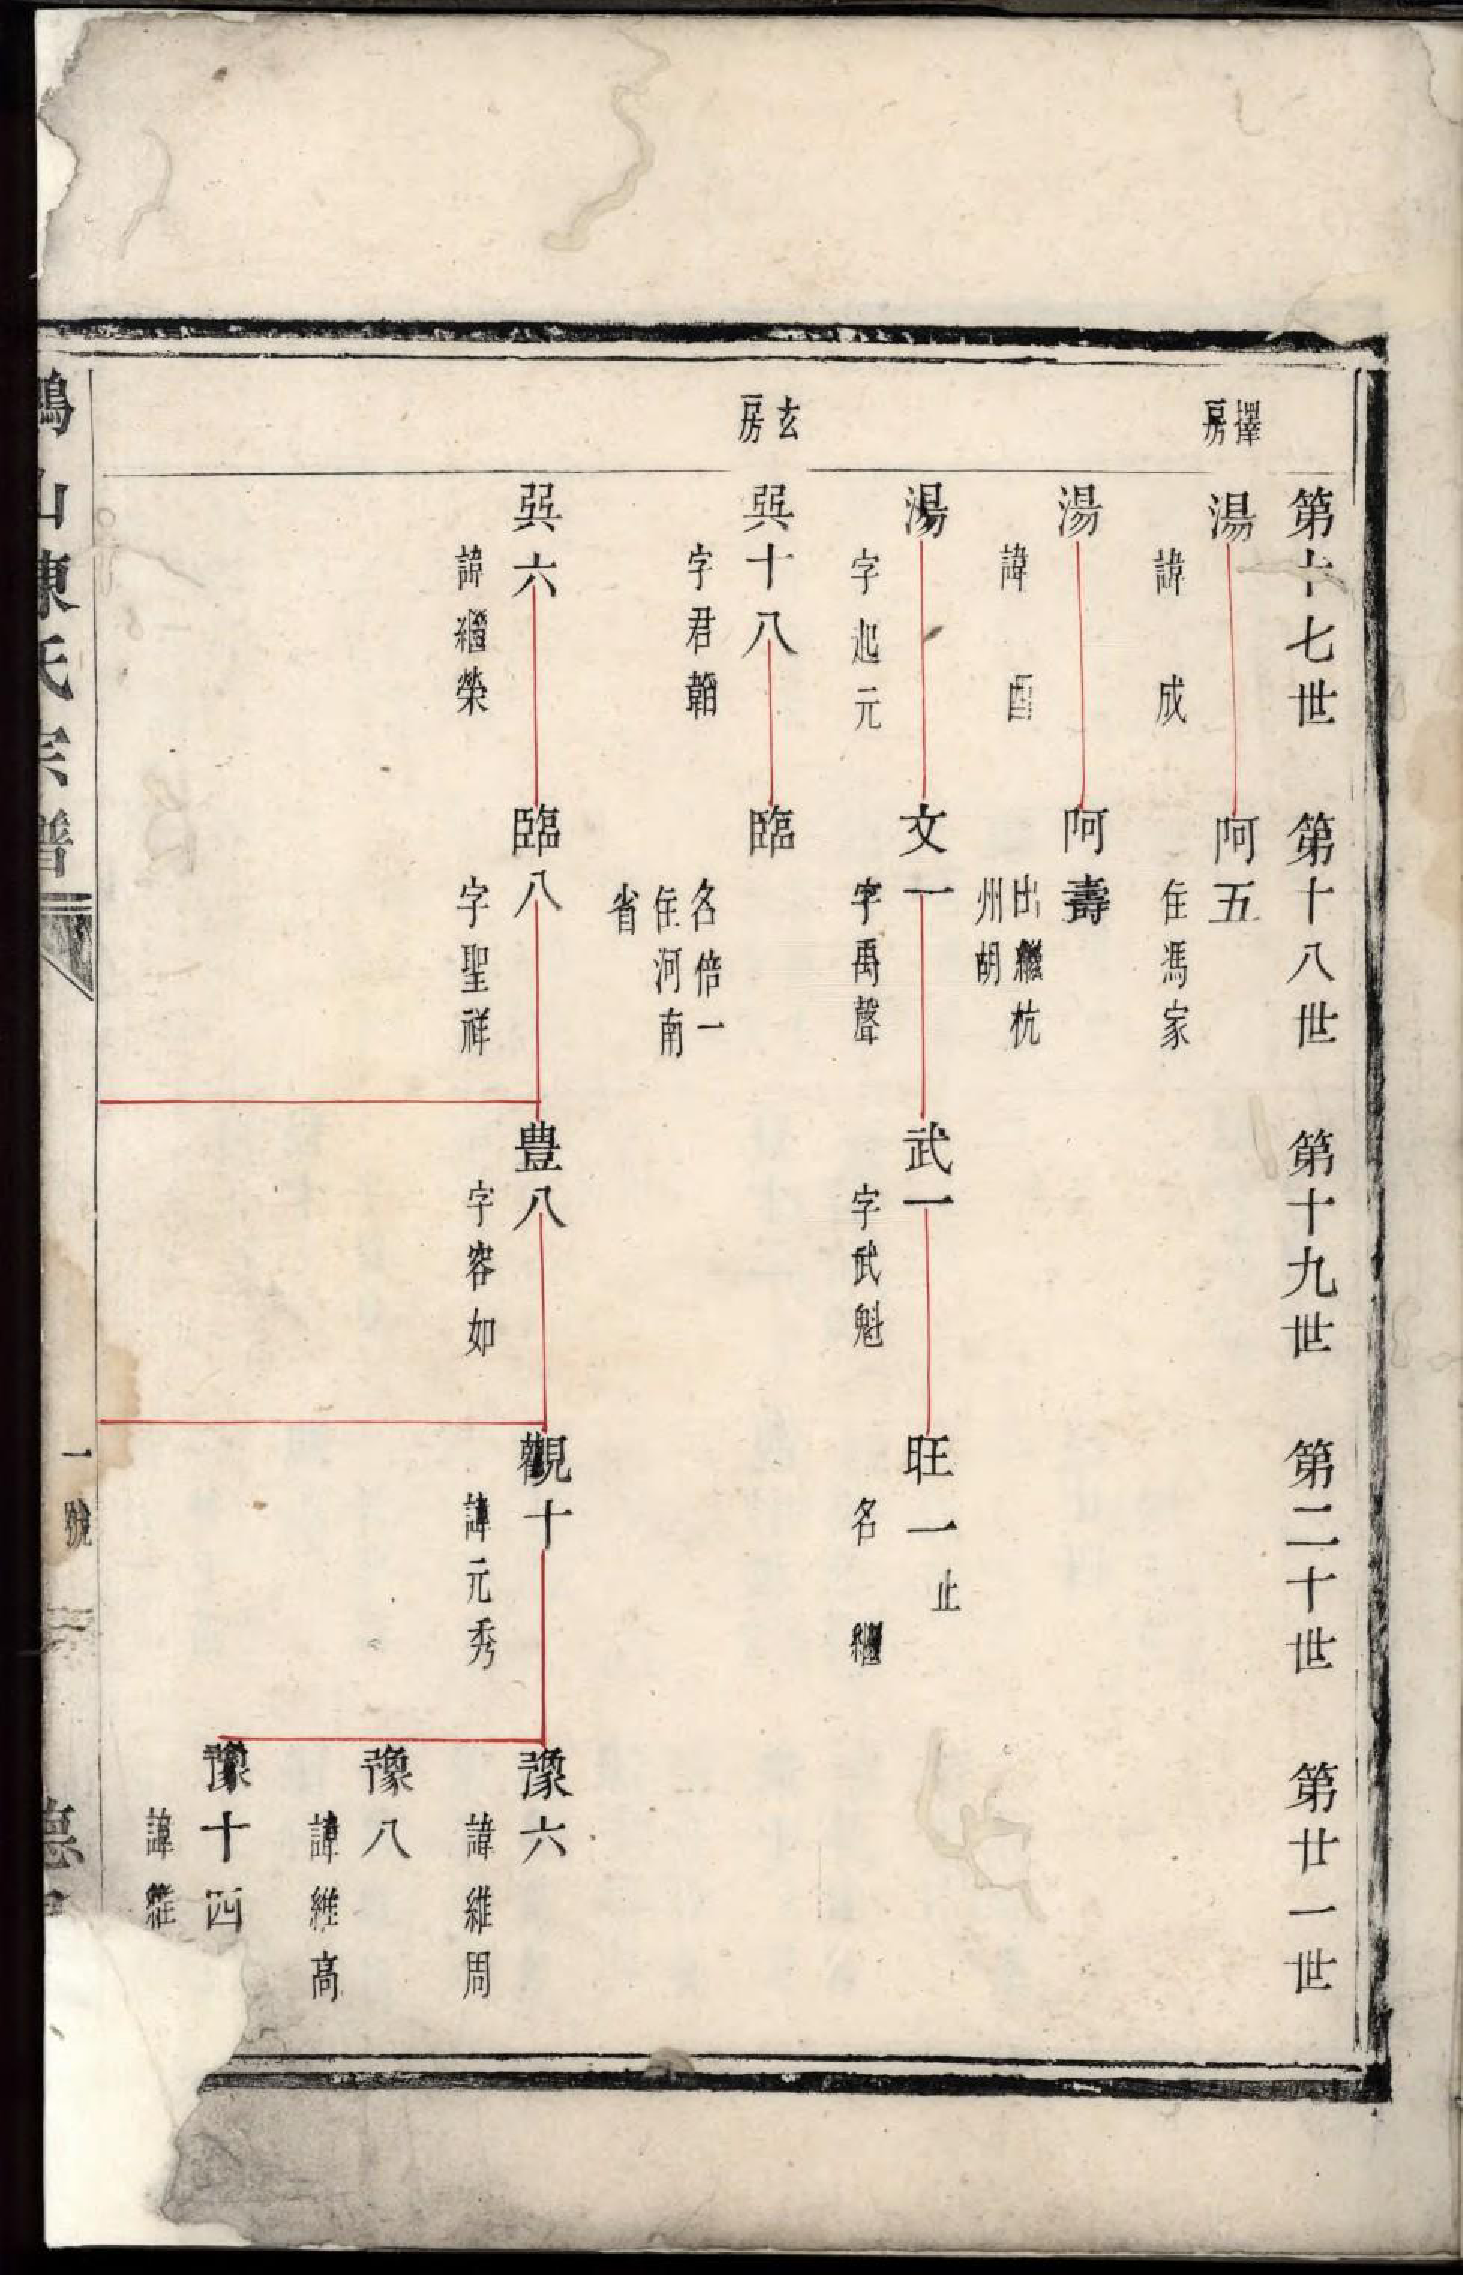 擇房
玄房
第十七世
第十八世
第十九世
第二十世
第廿一世
湯
諱成
阿五
住馮家
湯
諱酉
阿壽
出繼杭
州胡
湯
字起元
文一
字禹聲
武一
字武魁
旺一止
名繼
巽十八
字君韜
臨
名倍一
住河南
省
巽六
諱繼榮
臨八
字聖祥
豊八
字容如
觀十
諱元秀
豫六
諱維周
豫八
諱維高
豫十四
諱維
山陳氏宗譜
一號